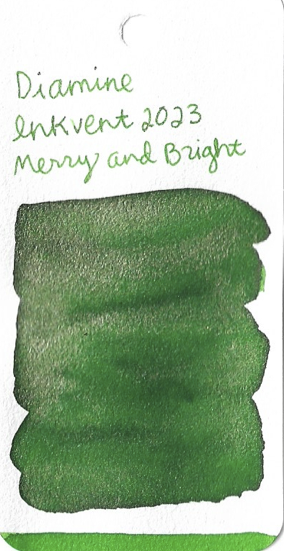 Diamine
Inkvent 2023
Merry and Bright